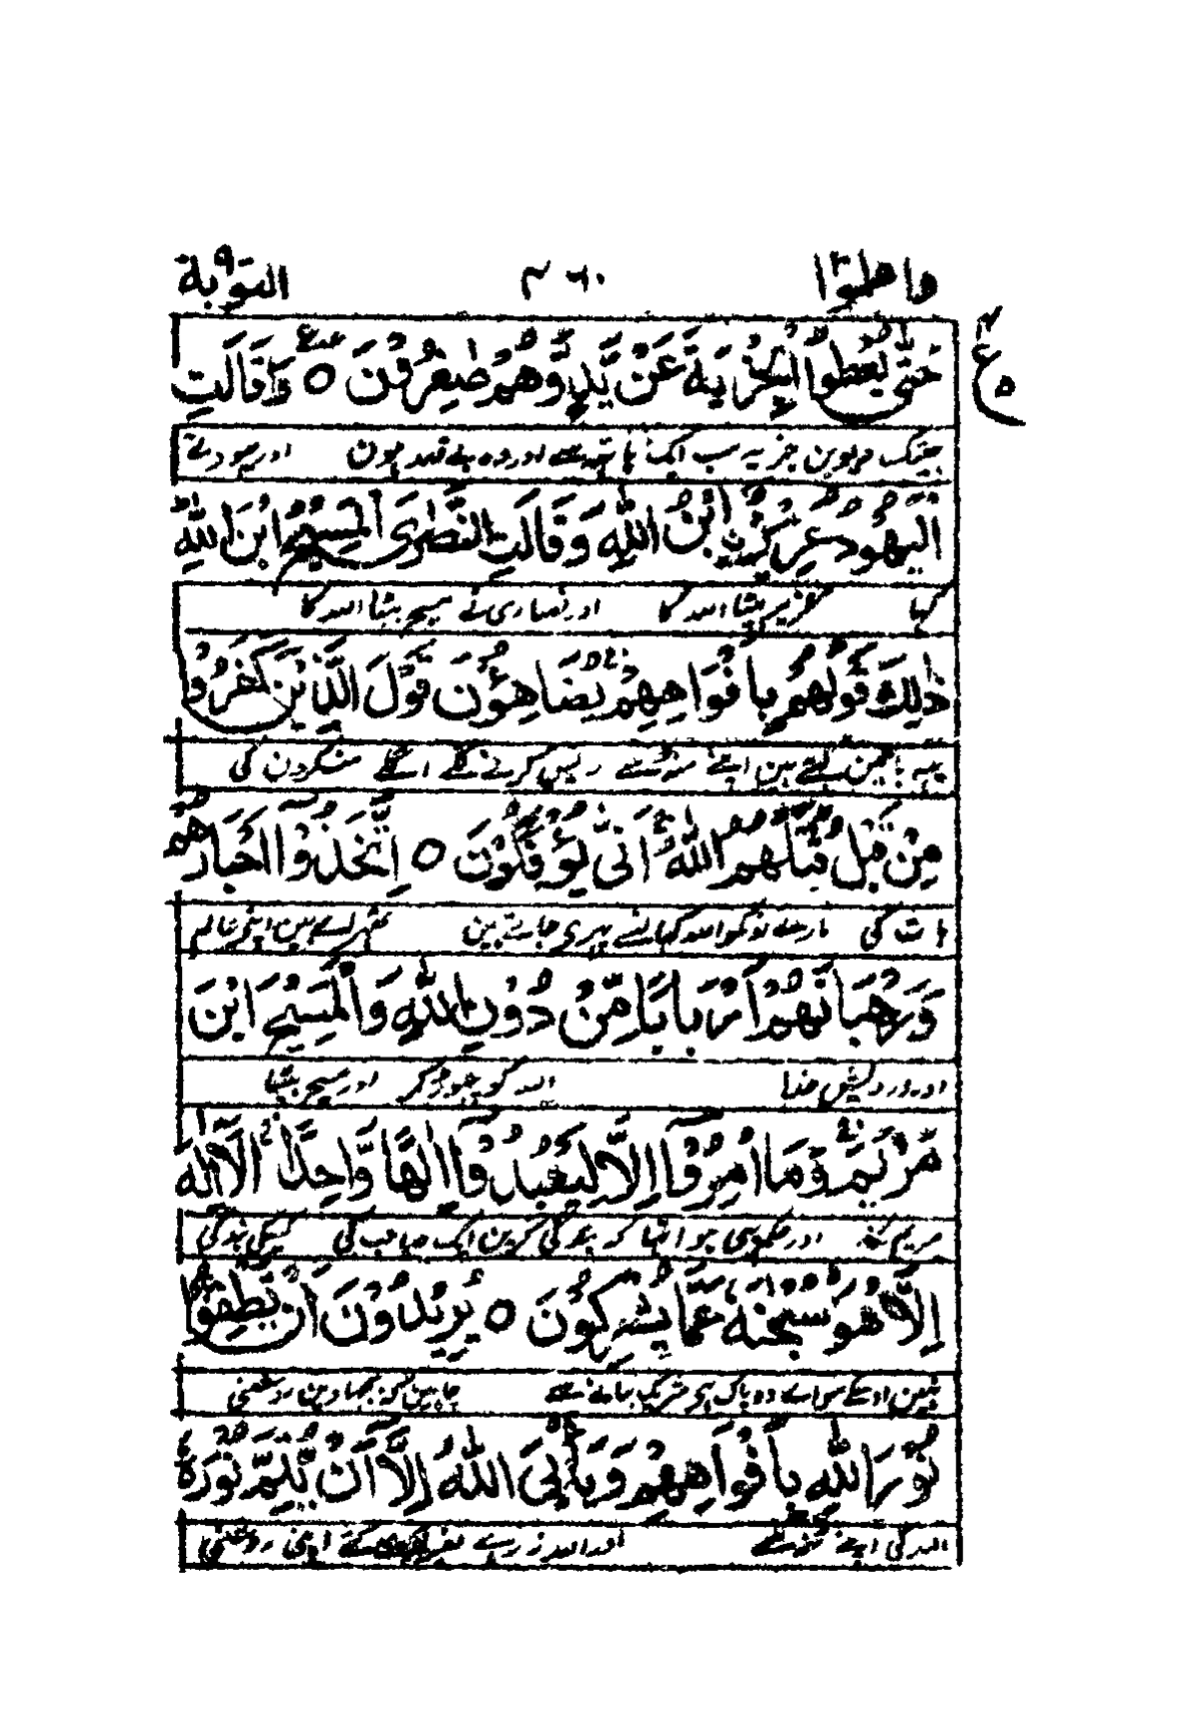 واعلموا ١٠ ٤٦٠ التوبة ٩
حَتّٰى يُعْطُوا الْجِزْيَةَ عَنْ يَّدٍ وَّهُمْ صٰغِرُوْنَ ۝ وَقَالَتِ
ع ٥
جبتک دیوین جزیہ سب ایک ہاتھ سے اور وہ بے قدر ہون اور یہود نے
الْيَهُوْدُ عُزَيْرُ ابْنُ اللّٰهِ وَقَالَتِ النَّصٰرَى الْمَسِيْحُ ابْنُ اللّٰهِ
کہا عزیر بیٹا اللہ کا اور نصاری نے مسیح بیٹا اللہ کا
ذٰلِكَ قَوْلُهُمْ بِاَفْوَاهِهِمْ يُضَاهِئُوْنَ قَوْلَ الَّذِيْنَ كَفَرُوْا
یہہ باتین کہتے ہین اپنے منہ سے ریس کرنے لگے اگلے منکرون کی
مِنْ قَبْلُ قٰتَلَهُمُ اللّٰهُ اَنّٰى يُؤْفَكُوْنَ ۝ اِتَّخَذُوْٓا اَحْبَارَهُمْ
بات کی مارے انکو اللہ کہان سے پہرے جاتے ہین ٹھہرائے ہین اپنے عالم
وَرُهْبَانَهُمْ اَرْبَابًا مِّنْ دُوْنِ اللّٰهِ وَالْمَسِيْحَ ابْنَ
اور درویش خدا اللہ کو چھوڑ کر اور مسیح بیٹا
مَرْيَمَ وَمَآ اُمِرُوْٓا اِلَّا لِيَعْبُدُوْٓا اِلٰهًا وَّاحِدًا لَآ اِلٰهَ
مریم کا اور حکم یہی ہوا تھا کہ بندگی کرین ایک صاحب کی کسیکی بندگی
اِلَّا هُوَ سُبْحٰنَهٗ عَمَّا يُشْرِكُوْنَ ۝ يُرِيْدُوْنَ اَنْ يُّطْفِئُوْا
نہین اوسکے سوا وہ پاک ہی شریک بتانے سے چاہین کہ بجھاوین روشنی
نُوْرَ اللّٰهِ بِاَفْوَاهِهِمْ وَيَاْبَى اللّٰهُ اِلَّآ اَنْ يُّتِمَّ نُوْرَهٗ
اللہ کی اپنے منہ سے اور اللہ نہ رہے اپنی روشنی